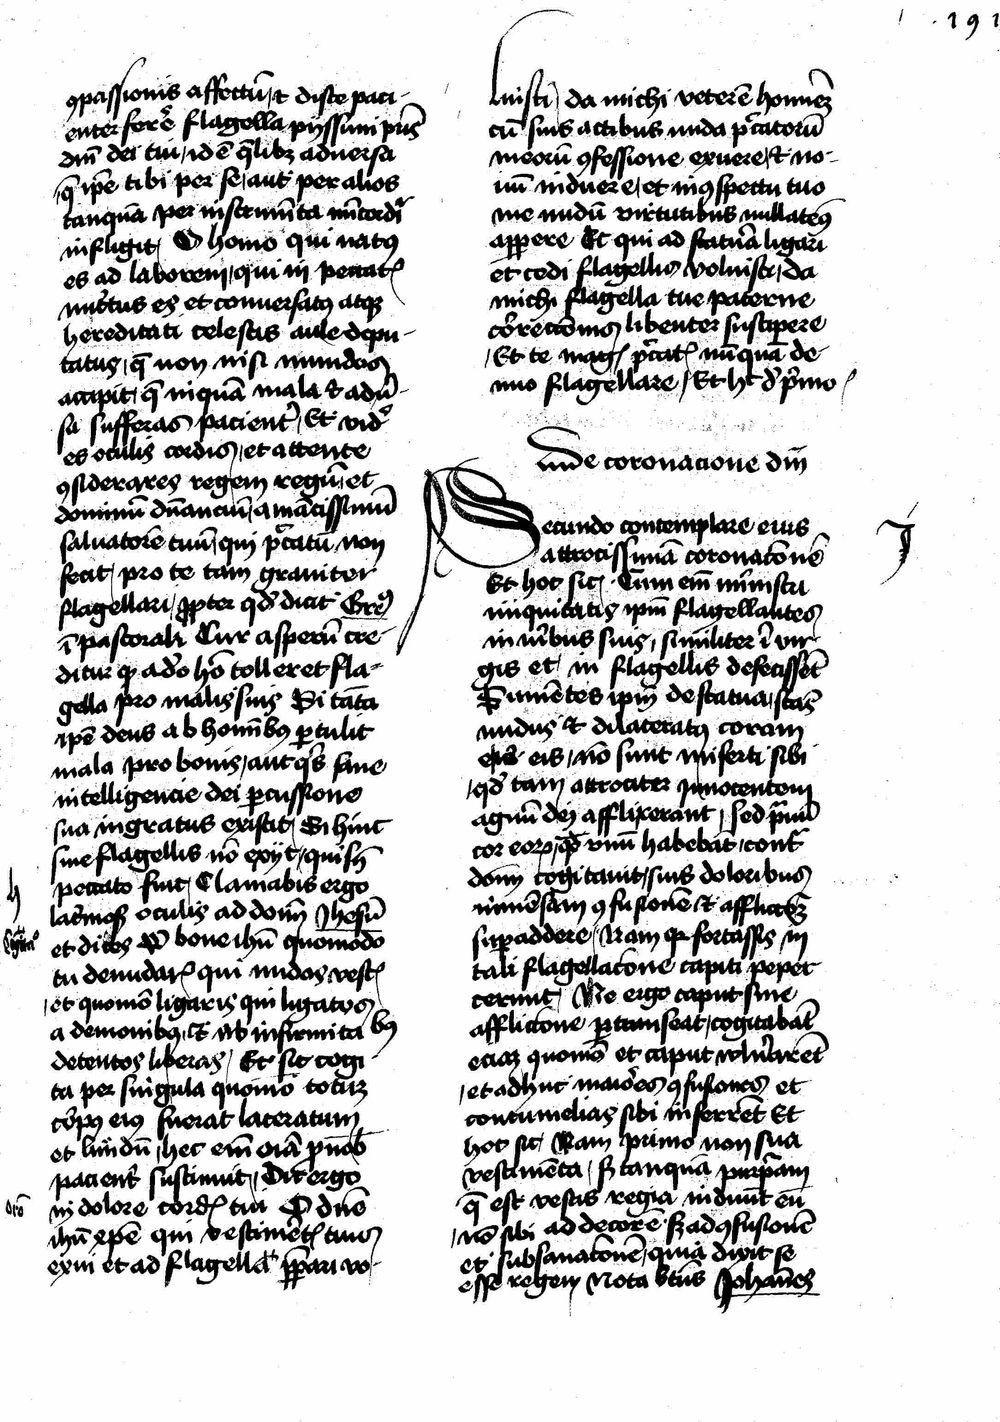 191
ꝯpassionis affectū / et disce paci-
enter ferre flagella pijssimi pr̄is
dn̄i dei tui / id ē q̄libꝫ aduersa
q̄ ip̄e tibi per se / aut per alios
tanquā per instrumēta mīcordit̄
infligit / O homo qui natꝯ
es ad laborem / qui in peccatis
nutritus es et conuersatꝯ atqꝫ
hereditati celestis aule depu-
tatus / q̄ non nisi mundos
accipit / q̄ niquā mala et adū-
sa sufferas pacient̄ / Et vid
es oculis cordis / et attente
ꝯsiderares regem regū / et
dominū dn̄anciū / amātissimū
saluatorē tuū / qui pc̄catū non
fecit / pro te tam grauiter
flagellari / ꝓpter qd̄ dicit Gre
ī pastorali Cur asperū cre-
ditur ꝙ a deo hō tolleret fla-
gella pro malis suis Si tāta
ip̄e deus ab hominibꝯ ꝑtulit
mala pro bonis / aut qis sane
intelligencie dei ꝑcussione
sua ingratus existit / Si hinc
sine flagellis nō exijt / qui sine
peccato fuit / Clamabis ergo
lacrimosis oculis ad dom̄ Jhesū
et dices O bone ihū quomodo
tu denudaris qui nudos vestis
et quomō ligaris qui ligatos
a demonibꝯ / et ab infirmitatibꝯ
detentos liberas / Et sic cogi
ta per singula quomō totum
corpꝯ eiꝯ fuerat laceratum
et liuidū / hec em̄ oīa pro nob̄
pacient̄ sustinuit / Dic ergo
in dolore cordis tui O dn̄e
ihū xpe qui vestimētis tuis
exui et ad flagella p̄pari vo-
orō
luisti / da michi veterē hominē
cū suis actibus nuda pc̄catorū
meorū ꝯfessione exuere / et no-
uū induere / et in ꝯspectu tuo
me nudū virtutibus nullatenꝯ
apꝑere Et qui ad statuā ligari
et cedi flagellis voluisti / da
michi flagella tue paterne
correctōnis libenter suscipere
/ Et te meis pc̄catis nūquā de-
nuo flagellare / Et hec de primo
De coronacione dn̄i
Secundo contemplare eius
attrocissimā coronacōnē
Et hoc sic / Cum em̄ ministri
iniquitatis ip̄m flagellantes
in viribus suis / similiter ī vir-
gis et in flagellis defecissēt
Sumentes ip̄m de statua / stās
nudus et dilaceratꝯ coram
eis / nō sunt miserti sibi
/ qd̄ tam attrociter innocentem
agnū dei afflixerant / sed p̄uū
cor eorꝫ / qd̄ vnū habebāt / cont̄
dom̄ cogitauit / suis doloribus
inmensam ꝯfusionē et afflictionem
suꝑaddere / Nam ꝙ fortassis in
tali flagellacōne capiti peper
cerunt / Ne ergo caput sine
afflictōne ꝑtranseat / cogitabāt
eciam quomō et caput vulnerarēt
/ et adhuc maiores ꝯfusiones et
contumelias sibi inferrēt Et
hoc sic / Nam primo non sua
vestimēta / sꝫ tanquā purpuram
q̄ est vestis regia induūt eū
/ nō sibi ad decorē sꝫ ad ꝯfusionē
et subsanacōnē / quia dixit se
esse regem Nota btūs Johānes